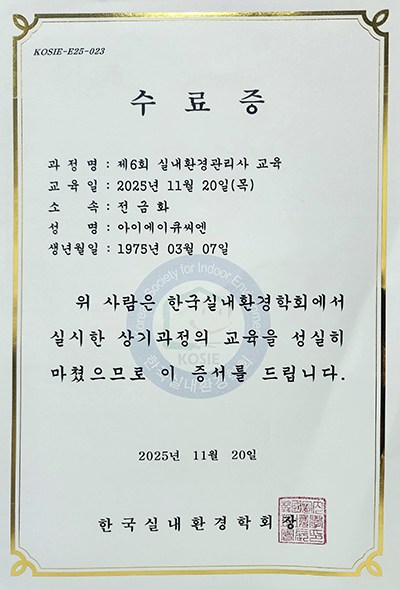 KOSIE-E25-023
수 료 증
과 정 명 : 제6회 실내환경관리사 교육
교 육 일 : 2025년 11월 20일(목)
소 속 : 전 금 화
성 명 : 아이에이유씨엔
생년월일 : 1975년 03월 07일
위 사람은 한국실내환경학회에서
실시한 상기과정의 교육을 성실히
마쳤으므로 이 증서를 드립니다.
Society for Indoor
KOSIE
한국실내환경학회
2025년 11월 20일
한국실내환경학회장